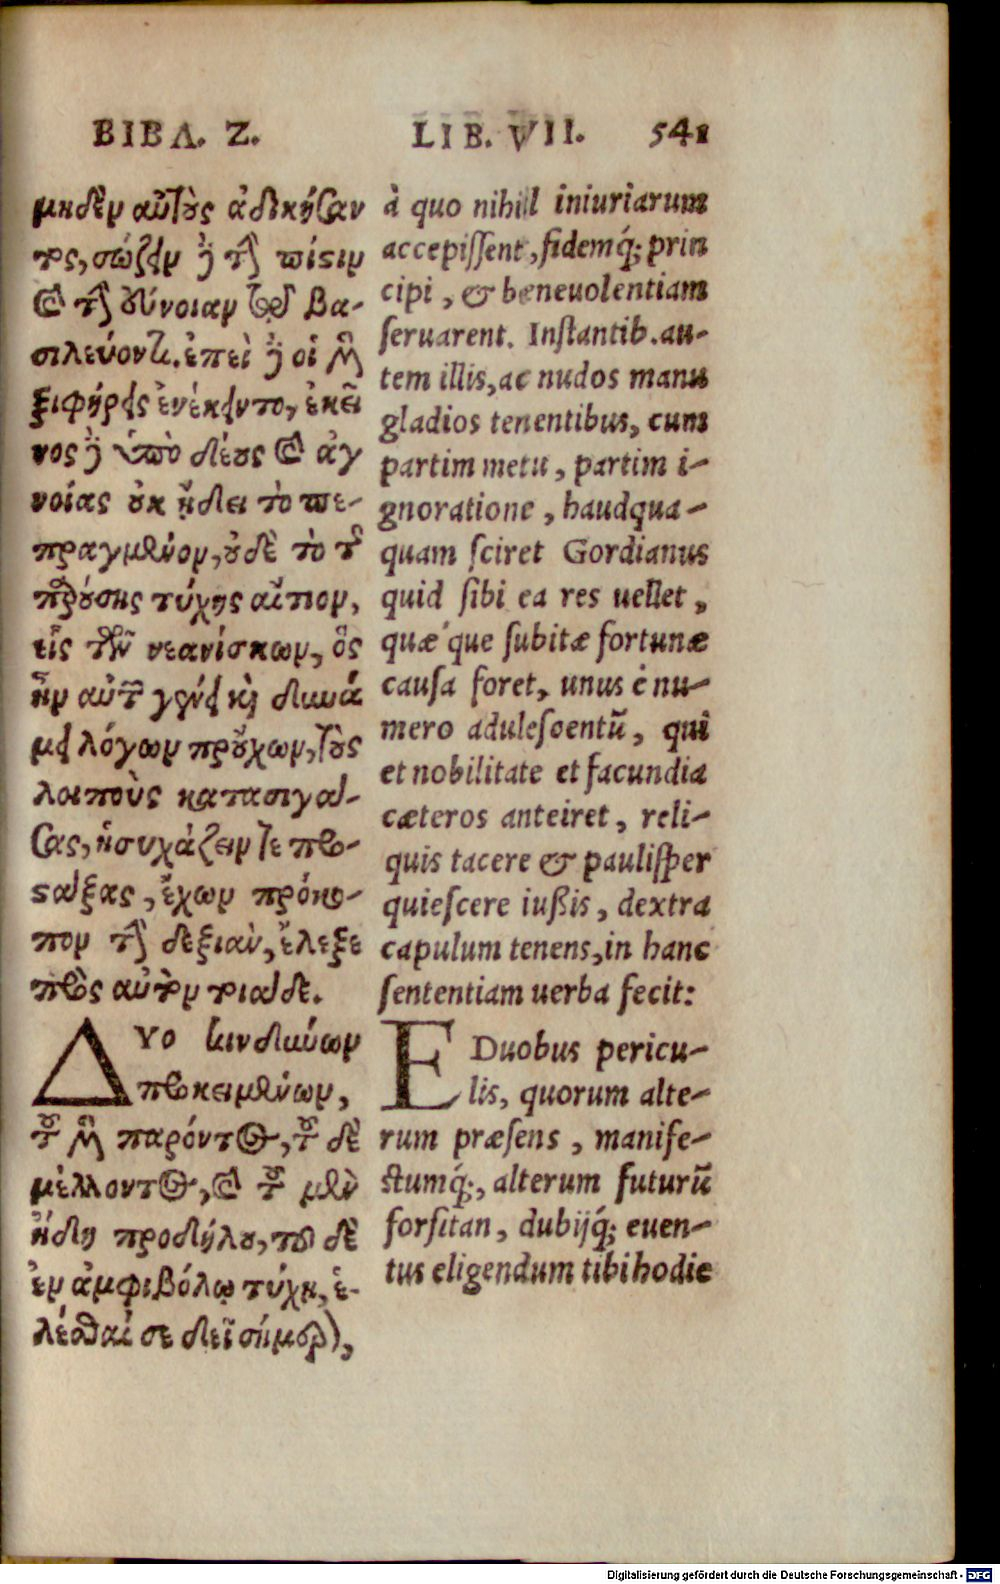 ΒΙΒΛ. Ζ.
μηδὲν αὐτοὺς ἀδικήσαν
τος, σώζειν δὲ τὴν πίστιν
καὶ τὴν εὔνοιαν τῷ βα-
σιλεύοντι. ἐπεὶ δὲ οἱ μὲν
ξιφήρεις ἐνέκειντο, ἐκεῖ
νος δὲ ὑπὸ δέους καὶ ἀγ
νοίας οὐκ ᾔδει τὸ πε-
πραγμένον, οὐδὲ τὸ τῆς
παρούσης τύχης αἴτιον,
εἷς τῶν νεανίσκων, ὃς
ἦν αὐτῶν γένει καὶ δυνά
μει λόγων προύχων, τοὺς
λοιποὺς κατασιγά-
σας, ἡσυχάζειν τε προ-
στάξας, ἔχων πρόκω-
πον τὴν δεξιὰν, ἔλεξε
πρὸς αὐτὸν τοιάδε.
ΔΥο κινδύνων
προκειμένων,
τοῦ μὲν παρόντος, τοῦ δὲ
μέλλοντος, καὶ τοῦ μὲν
ἤδη προδήλου, τοῦ δὲ
ἐν ἀμφιβόλῳ τύχῃ, ἑ-
λέσθαι σε δεῖ σήμερον,
LIB. VII. 541
à quo nihil iniuriarum
accepiſſent, fidemq́; prin
cipi, & beneuolentiam
ſeruarent. Inſtantib. au-
tem illis, ac nudos manu
gladios tenentibus, cum
partim metu, partim i-
gnoratione, haudqua-
quam ſciret Gordianus
quid ſibi ea res uellet,
quæ'que ſubitæ fortunæ
cauſa foret, unus è nu-
mero aduleſcentũ, qui
et nobilitate et facundia
cæteros anteiret, reli-
quis tacere & pauliſper
quieſcere iußis, dextra
capulum tenens, in hanc
ſententiam uerba fecit:
E Duobus pericu-
lis, quorum alte-
rum præſens, manife-
ſtumq́;, alterum futurũ
forſitan, dubijq́; euen-
tus eligendum tibi hodie
Digitalisierung gefördert durch die Deutsche Forschungsgemeinschaft - DFG